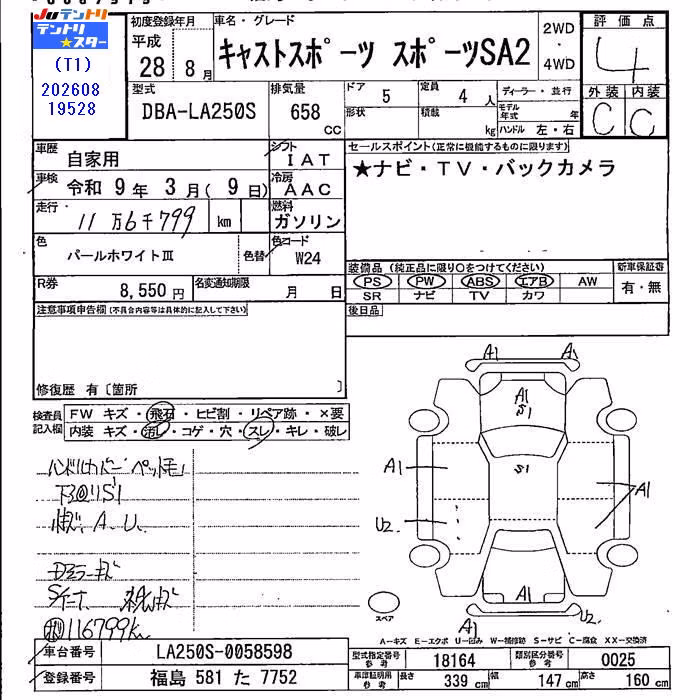 JUテントリ
テントリ★スター
(T1)
202608
19528
初度登録年月
平成
28 8月
車名・グレード
キャストスポーツ スポーツSA2
2WD
・
4WD
評価点
4
外装 内装
C C
型式
DBA-LA250S
排気量
658 CC
ドア 5
定員 4 人
形状
積載 kg
ディーラー・並行
モデル年式 年
ハンドル 左・右
車歴 自家用
シフト IAT
車検 令和 9年 3月( 9日)
冷房 AAC
走行 11万6千799 km
燃料 ガソリン
色 パールホワイトⅢ
色替
色コード W24
R券 8,550円
名変通知期限 月 日
セールスポイント(正常に機能するものに限ります)
★ナビ・TV・バックカメラ
装備品(純正品に限り○をつけてください)
PS PW ABS エアB AW
SR ナビ TV カワ
新車保証書
有・無
後日品
注意事項申告欄(不具合内容等は具体的に記入して下さい)
修復歴 有〔箇所 〕
検査員記入欄
FW キズ・飛石・ヒビ割・リペア跡・×要
内装 キズ・汚レ・コゲ・穴・スレ・キレ・破レ
下回りS1
A、U、
116799k
A1 A1
A1
S1
A1
S1
A1
U2
A1
A1
U2
スペア
A-キズ E-エクボ U-凹み W-補修跡 S-サビ C-腐食 XX-交換済
車台番号 LA250S-0058598
登録番号 福島 581 た 7752
型式指定番号参考 18164
類別区分番号参考 0025
車庫証明用参考 長さ 339 cm 幅 147 cm 高さ 160 cm